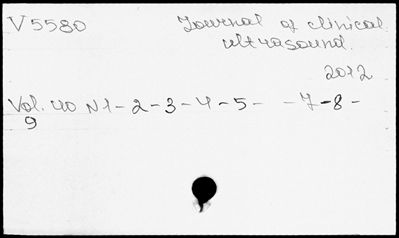 V5580 Journal of clinical
ultrasound.
2012
Vol. 40 N1-2-3-4-5- -7-8-
9